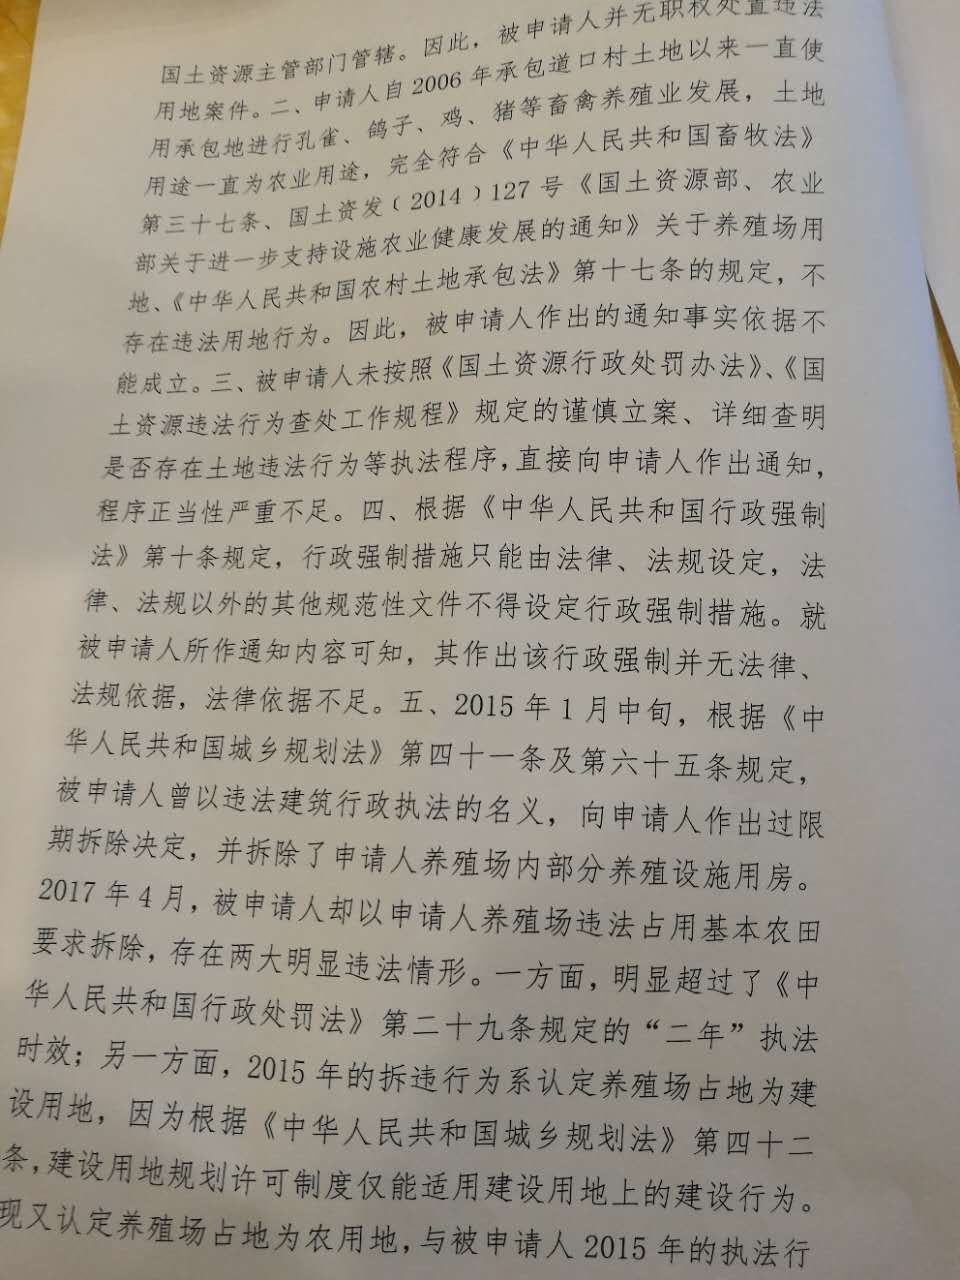 国土资源主管部门管辖。因此，被申请人并无职权处置违法
用地案件。二、申请人自2006年承包道口村土地以来一直使
用承包地进行孔雀、鸽子、鸡、猪等畜禽养殖业发展，土地
用途一直为农业用途，完全符合《中华人民共和国畜牧法》
第三十七条、国土资发﹝2014﹞127号《国土资源部、农业
部关于进一步支持设施农业健康发展的通知》关于养殖场用
地、《中华人民共和国农村土地承包法》第十七条的规定，不
存在违法用地行为。因此，被申请人作出的通知事实依据不
能成立。三、被申请人未按照《国土资源行政处罚办法》、《国
土资源违法行为查处工作规程》规定的谨慎立案、详细查明
是否存在土地违法行为等执法程序，直接向申请人作出通知，
程序正当性严重不足。四、根据《中华人民共和国行政强制
法》第十条规定，行政强制措施只能由法律、法规设定，法
律、法规以外的其他规范性文件不得设定行政强制措施。就
被申请人所作通知内容可知，其作出该行政强制并无法律、
法规依据，法律依据不足。五、2015年1月中旬，根据《中
华人民共和国城乡规划法》第四十一条及第六十五条规定，
被申请人曾以违法建筑行政执法的名义，向申请人作出过限
期拆除决定，并拆除了申请人养殖场内部分养殖设施用房。
2017年4月，被申请人却以申请人养殖场违法占用基本农田
要求拆除，存在两大明显违法情形。一方面，明显超过了《中
华人民共和国行政处罚法》第二十九条规定的“二年”执法
时效；另一方面，2015年的拆违行为系认定养殖场占地为建
设用地，因为根据《中华人民共和国城乡规划法》第四十二
条，建设用地规划许可制度仅能适用建设用地上的建设行为。
现又认定养殖场占地为农用地，与被申请人2015年的执法行